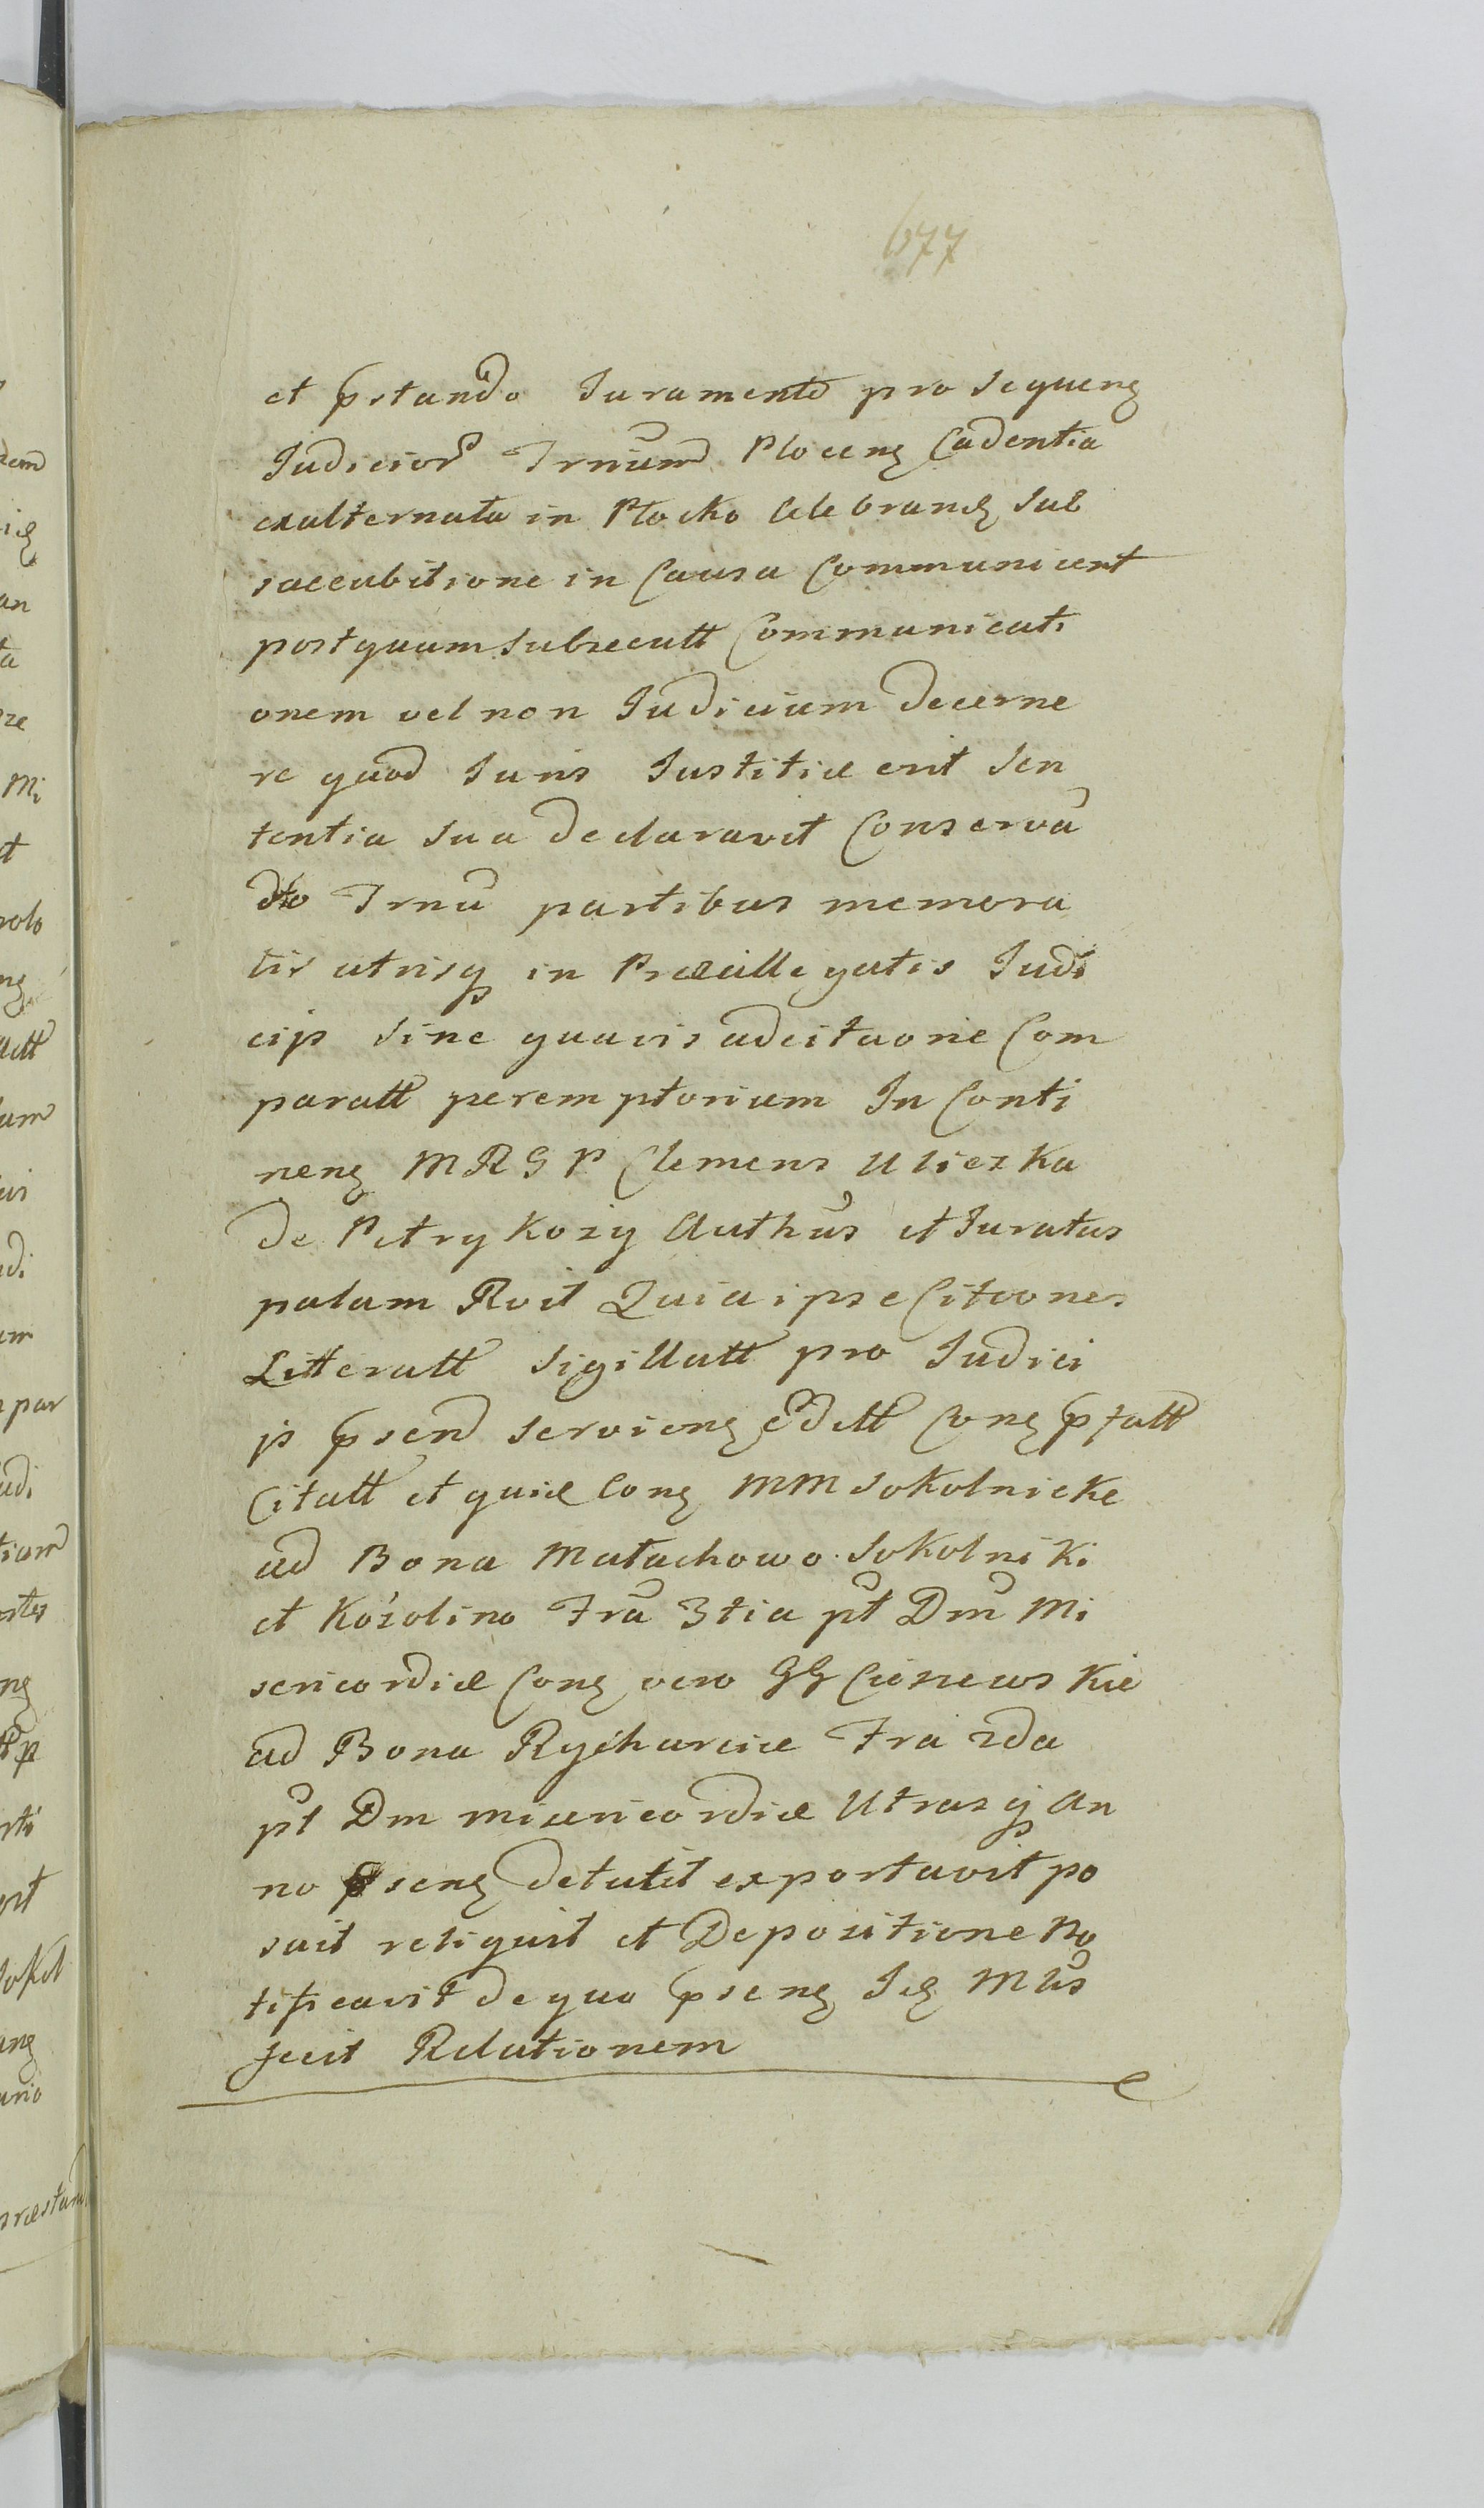 677
et pstando Juramento pro sequenꝫ
Judicior Trrium Plocenꝫ Cadentia
exalternata in Płocko Celebrandꝫ sub
succubitione in Causa Communicent
postquam subsecutt Communicati
onem vel non Judicium decerne
re quod Juris Justitiæ erit Sen
tentia sua declaravit Conserva
to Trnu partibus memora
tis utrisqꝫ in Præallegatis Judi
cijs sine quavis adcitaone Com
paratt peremptorium In Conti
nenꝫ MRGP Clemens Uliczka
de Petrykozy Authus et Juratus
palam Rvit Quia ipse Citoones
Litteratt Sigillatt pro Judici
js psend servienꝫ edditt Conꝫ pfatt
Citatt et quid Conꝫ MM Sokolnicke
ad Bona Małachowo Sokolniki
et Koźolino Fra 3tia pt Dm Mi
sericordiæ Conꝫ vero GG Ciesiewskie
ad Bona Rycharcice Fra 2da
pt Dm misericordiæ Utrasqꝫ An
no psenꝫ detulit exportavit po
suit reliquit et Depositione No
tificavit de quo psenꝫ Idꝫ Mlis
fecit Relationem